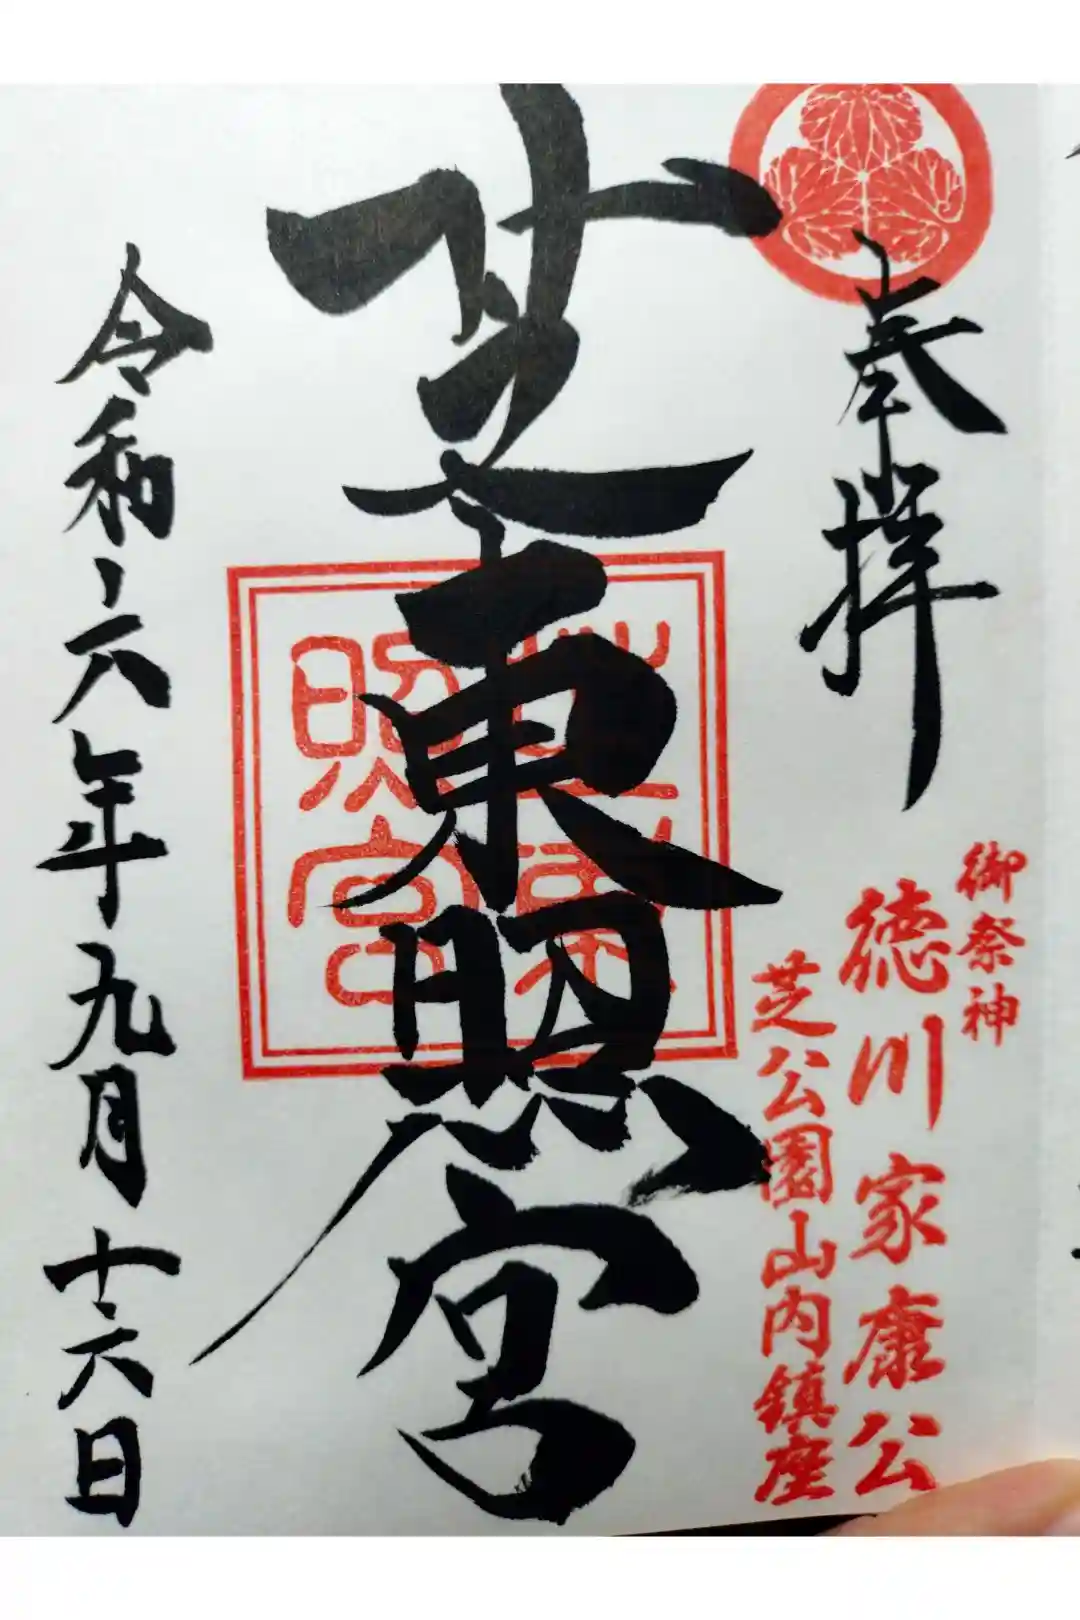 奉拝
御祭神
徳川家康公
芝公園山内鎮座
芝東照宮
芝東
照宮
令和六年九月十六日